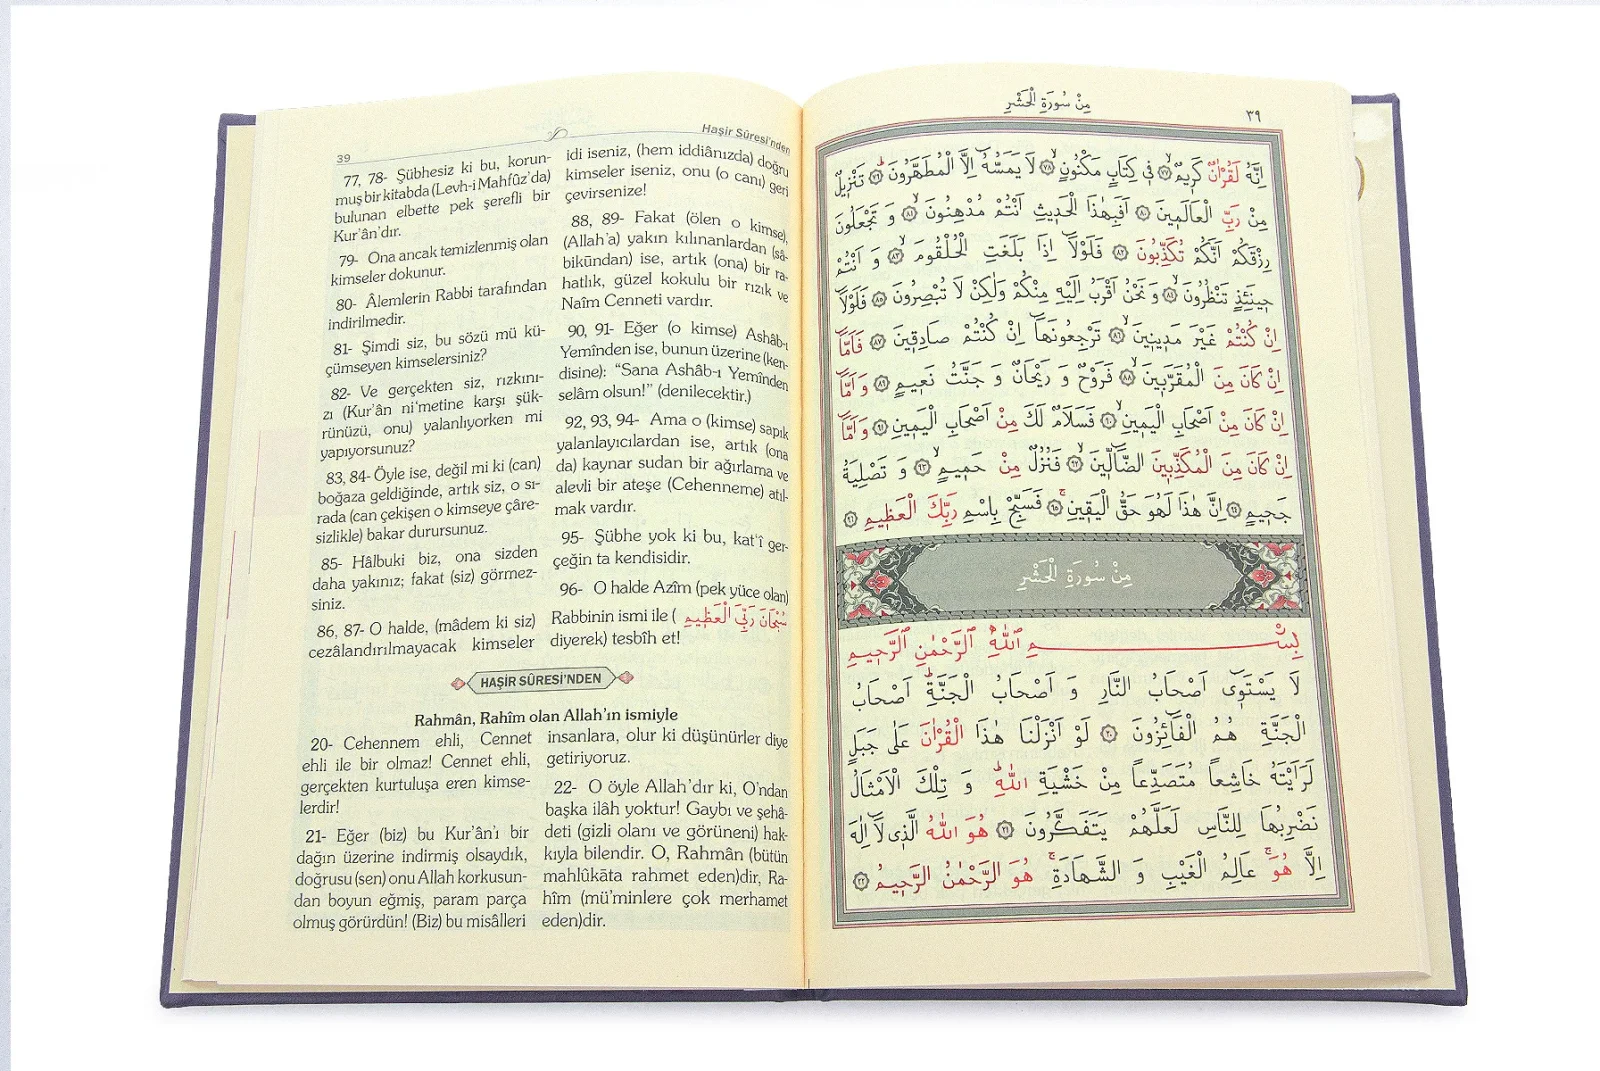 39
Haşir Sûresi'nden
77, 78- Şübhesiz ki bu, korun-
muş bir kitabda (Levh-i Mahfûz'da)
bulunan elbette pek şerefli bir
Kur'ân'dır.
79- Ona ancak temizlenmiş olan
kimseler dokunur.
80- Âlemlerin Rabbi tarafından
indirilmedir.
81- Şimdi siz, bu sözü mü kü-
çümseyen kimselersiniz?
82- Ve gerçekten siz, rızkını-
zı (Kur'ân ni'metine karşı şük-
rünüzü, onu) yalanlıyorken mi
yapıyorsunuz?
83, 84- Öyle ise, değil mi ki (can)
boğaza geldiğinde, artık siz, o sı-
rada (can çekişen o kimseye çâre-
sizlikle) bakar durursunuz.
85- Hâlbuki biz, ona sizden
daha yakınız; fakat (siz) görmez-
siniz.
86, 87- O halde, (mâdem ki siz)
cezâlandırılmayacak kimseler
idi iseniz, (hem iddiânızda) doğru
kimseler iseniz, onu (o canı) geri
çevirsenize!
88, 89- Fakat (ölen o kimse),
(Allah'a) yakın kılınanlardan (sâ-
bikûndan) ise, artık (ona) bir ra-
hatlık, güzel kokulu bir rızık ve
Naîm Cenneti vardır.
90, 91- Eğer (o kimse) Ashâb-ı
Yemînden ise, bunun üzerine (ken-
disine): “Sana Ashâb-ı Yemînden
selâm olsun!” (denilecektir.)
92, 93, 94- Ama o (kimse) sapık
yalanlayıcılardan ise, artık (ona
da) kaynar sudan bir ağırlama ve
alevli bir ateşe (Cehenneme) atıl-
mak vardır.
95- Şübhe yok ki bu, kat'î ger-
çeğin ta kendisidir.
96- O halde Azîm (pek yüce olan)
Rabbinin ismi ile (سُبْحَانَ رَبِّيَ الْعَظِيمِ
diyerek) tesbîh et!
HAŞİR SÛRESİ'NDEN
Rahmân, Rahîm olan Allah'ın ismiyle
20- Cehennem ehli, Cennet
ehli ile bir olmaz! Cennet ehli,
gerçekten kurtuluşa eren kimse-
lerdir!
21- Eğer (biz) bu Kur'ân'ı bir
dağın üzerine indirmiş olsaydık,
doğrusu (sen) onu Allah korkusun-
dan boyun eğmiş, param parça
olmuş görürdün! (Biz) bu misâlleri
insanlara, olur ki düşünürler diye
getiriyoruz.
22- O öyle Allah'dır ki, O'ndan
başka ilâh yoktur! Gaybı ve şehâ-
deti (gizli olanı ve görüneni) hak-
kıyla bilendir. O, Rahmân (bütün
mahlûkāta rahmet eden)dir, Ra-
hîm (mü'minlere çok merhamet
eden)dir.
مِنْ سُورَةِ الْحَشْرِ
٣٩
اِنَّهُ لَقُرْاٰنٌ كَرِيمٌ ﴿٧٧﴾ فِى كِتَابٍ مَكْنُونٍ ﴿٧٨﴾ لَا يَمَسُّهُٓ اِلَّا الْمُطَهَّرُونَ ﴿٧٩﴾ تَنْزِيلٌ
مِنْ رَبِّ الْعَالَمِينَ ﴿٨٠﴾ اَفَبِهٰذَا الْحَدِيثِ اَنْتُمْ مُدْهِنُونَ ﴿٨١﴾ وَ تَجْعَلُونَ
رِزْقَكُمْ اَنَّكُمْ تُكَذِّبُونَ ﴿٨٢﴾ فَلَوْلَٓا اِذَا بَلَغَتِ الْحُلْقُومَ ﴿٨٣﴾ وَ اَنْتُمْ
حِينَئِذٍ تَنْظُرُونَ ﴿٨٤﴾ وَ نَحْنُ اَقْرَبُ اِلَيْهِ مِنْكُمْ وَلٰكِنْ لَا تُبْصِرُونَ ﴿٨٥﴾ فَلَوْلَٓا
اِنْ كُنْتُمْ غَيْرَ مَدِينِينَ ﴿٨٦﴾ تَرْجِعُونَهَٓا اِنْ كُنْتُمْ صَادِقِينَ ﴿٨٧﴾ فَاَمَّٓا
اِنْ كَانَ مِنَ الْمُقَرَّبِينَ ﴿٨٨﴾ فَرَوْحٌ وَ رَيْحَانٌ وَ جَنَّتُ نَعِيمٍ ﴿٨٩﴾ وَ اَمَّٓا
اِنْ كَانَ مِنْ اَصْحَابِ الْيَمِينِ ﴿٩٠﴾ فَسَلَامٌ لَكَ مِنْ اَصْحَابِ الْيَمِينِ ﴿٩١﴾ وَ اَمَّٓا
اِنْ كَانَ مِنَ الْمُكَذِّبِينَ الضَّٓالِّينَ ﴿٩٢﴾ فَنُزُلٌ مِنْ حَمِيمٍ ﴿٩٣﴾ وَ تَصْلِيَةُ
جَحِيمٍ ﴿٩٤﴾ اِنَّ هٰذَا لَهُوَ حَقُّ الْيَقِينِ ﴿٩٥﴾ فَسَبِّحْ بِاسْمِ رَبِّكَ الْعَظِيمِ ﴿٩٦﴾
مِنْ سُورَةِ الْحَشْرِ
بِسْمِ اللّٰهِ الرَّحْمٰنِ الرَّحِيمِ
لَا يَسْتَوِٓى اَصْحَابُ النَّارِ وَ اَصْحَابُ الْجَنَّةِ اَصْحَابُ
الْجَنَّةِ هُمُ الْفَٓائِزُونَ ﴿٢٠﴾ لَوْ اَنْزَلْنَا هٰذَا الْقُرْاٰنَ عَلٰى جَبَلٍ
لَرَاَيْتَهُ خَاشِعاً مُتَصَدِّعاً مِنْ خَشْيَةِ اللّٰهِ وَ تِلْكَ الْاَمْثَالُ
نَضْرِبُهَا لِلنَّاسِ لَعَلَّهُمْ يَتَفَكَّرُونَ ﴿٢١﴾ هُوَ اللّٰهُ الَّذِى لَٓا اِلٰهَ
اِلَّا هُوَ عَالِمُ الْغَيْبِ وَ الشَّهَادَةِ هُوَ الرَّحْمٰنُ الرَّحِيمُ ﴿٢٢﴾